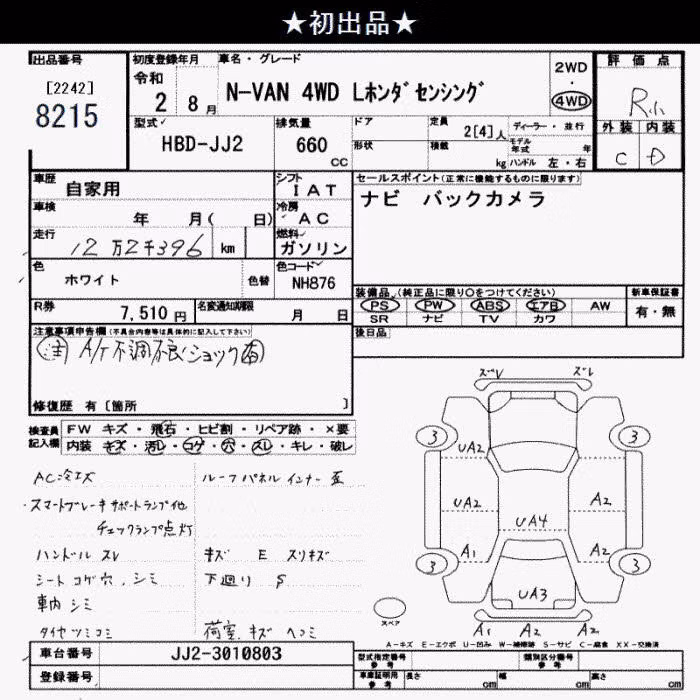 ★初出品★
出品番号
[2242]
8215
初度登録年月
令和
2 8月
車名・グレード
N-VAN 4WD Lホンダセンシング
2WD
・
4WD
評価点
R小
外装 内装
C D
型式
HBD-JJ2
排気量
660
CC
ドア
形状
定員
2[4]人
積載
kg
ディーラー・並行
モデル年式 年
ハンドル 左・右
車歴
自家用
シフト
IAT
車検
年 月( 日)
冷房
AC
走行
12万2千396 km
燃料
ガソリン
色
ホワイト
色替
色コード
NH876
R券
7,510円
名変通知期限
月 日
セールスポイント(正常に機能するものに限ります)
ナビ バックカメラ
装備品(純正品に限り○をつけてください)
PS PW ABS エアB AW
SR ナビ TV カワ
新車保証書
有・無
後日品
注意事項申告欄(不具合内容等は具体的に記入して下さい)
注 A/T不調不良(ショック有)
修復歴 有〔箇所 〕
検査員
記入欄
FW キズ・飛石・ヒビ割・リペア跡・×要
内装 キズ・汚レ・コゲ・穴・スレ・キレ・破レ
AC冷エズ
スマートブレーキサポートランプ他
チェックランプ点灯
ハンドル スレ
シート コゲ穴、シミ
車内 シミ
タイヤツミコミ
ルーフパネル インナー 歪
キズ E スリキズ
下廻り S
荷室 キズ ヘコミ
ズレ ズレ
3 3
UA2
UA2 A2
UA4
A1 A2
3 3
UA3
スペア
A1 A2 A2
A-キズ E-エクボ U-凹み W-補修跡 S-サビ C-腐食 XX-交換済
車台番号
JJ2-3010803
登録番号
型式指定番号
参考
類別区分番号
参考
車庫証明用
参考
長さ cm
幅 cm
高さ cm